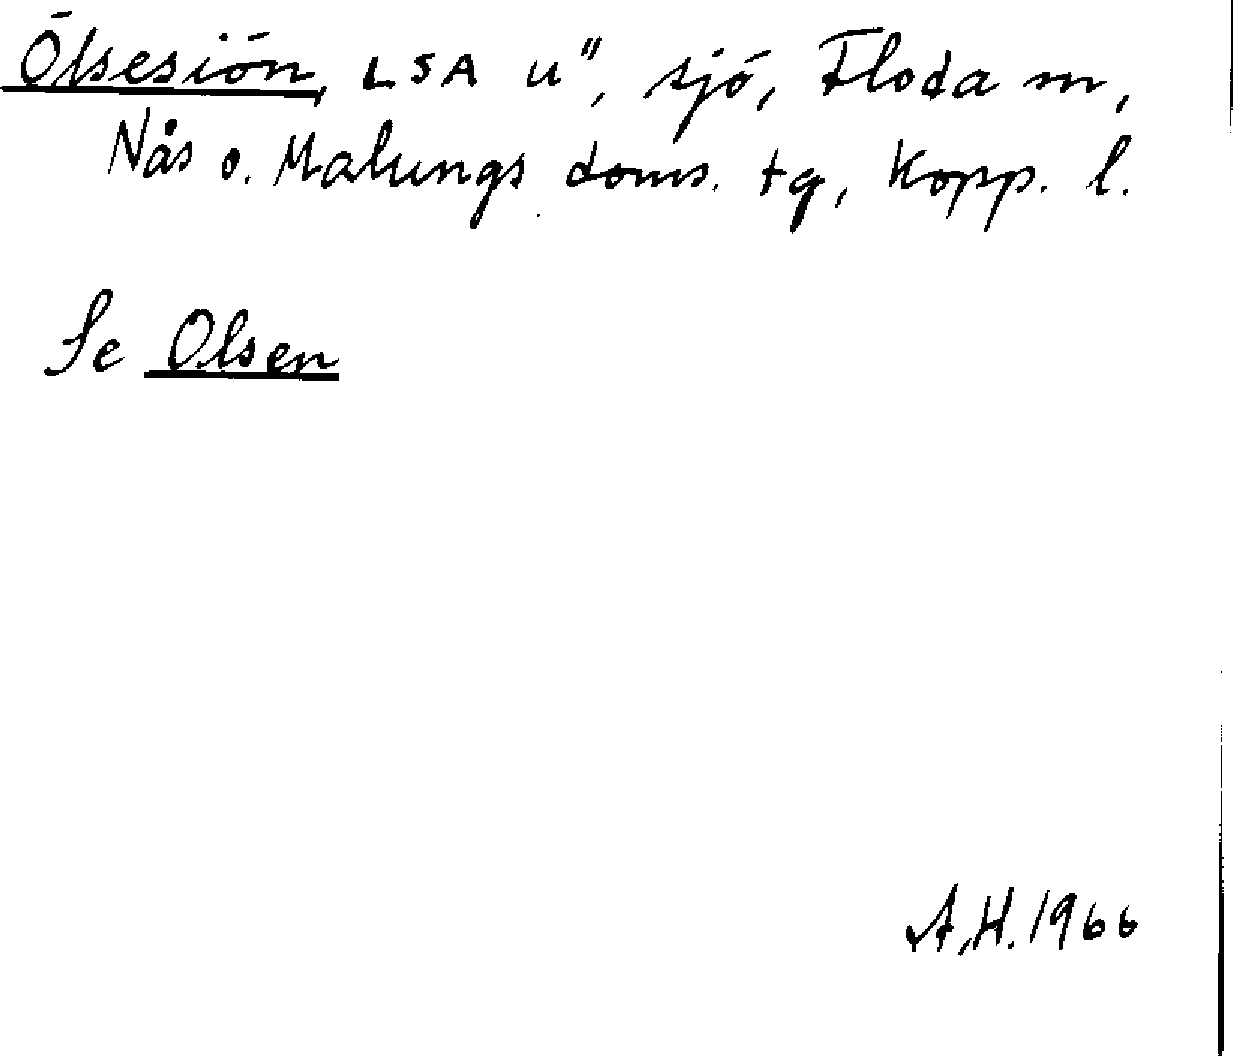 Ölsesiön, LSA u", sjö, Floda sn,
Nås o. Malungs doms. tg, Kopp. l.
Se Olsen
A.H. 1966